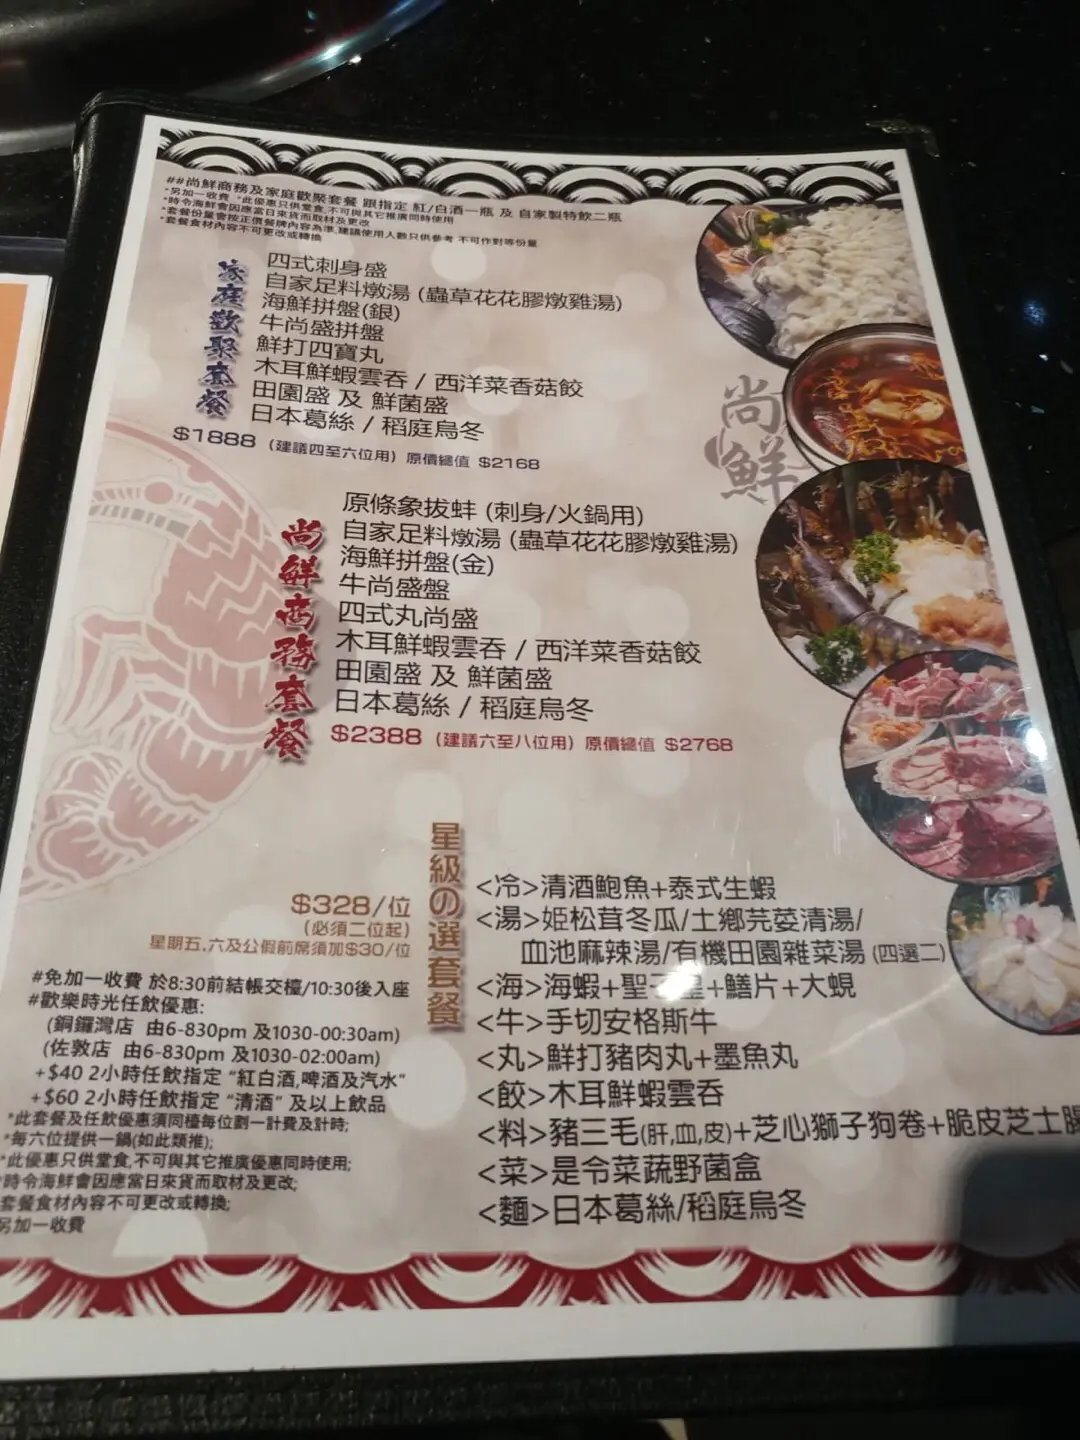 ##尚鮮商務及家庭歡聚套餐 跟指定 紅/白酒一瓶 及 自家製特飲二瓶
*另加一收費 *此優惠只供堂食,不可與其它推廣同時使用
*時令海鮮會因應當日來貨而取材及更改
*套餐份量會按正價餐牌內容為準,建議使用人數只供參考 不可作對等份量
*套餐食材內容不可更改或轉換
家庭歡聚套餐
四式刺身盛
自家足料燉湯 (蟲草花花膠燉雞湯)
海鮮拼盤(銀)
牛尚盛拼盤
鮮打四寶丸
木耳鮮蝦雲吞 / 西洋菜香菇餃
田園盛 及 鮮菌盛
日本葛絲 / 稻庭烏冬
$1888 (建議四至六位用) 原價總值 $2168
尚鮮
尚鮮商務套餐
原條象拔蚌 (刺身/火鍋用)
自家足料燉湯 (蟲草花花膠燉雞湯)
海鮮拼盤(金)
牛尚盛盤
四式丸尚盛
木耳鮮蝦雲吞 / 西洋菜香菇餃
田園盛 及 鮮菌盛
日本葛絲 / 稻庭烏冬
$2388 (建議六至八位用) 原價總值 $2768
星級の選套餐
$328/位
(必須二位起)
星期五､六及公假前席須加$30/位
<冷>清酒鮑魚+泰式生蝦
<湯>姫松茸冬瓜/土鄉芫荽清湯/
血池麻辣湯/有機田園雜菜湯 (四選二)
<海>海蝦+聖子皇+鱔片+大蜆
<牛>手切安格斯牛
<丸>鮮打豬肉丸+墨魚丸
<餃>木耳鮮蝦雲吞
<料>豬三毛(肝,血,皮)+芝心獅子狗卷+脆皮芝士腸
<菜>是令菜蔬野菌盒
<麵>日本葛絲/稻庭烏冬
#免加一收費 於8:30前結帳交檯/10:30後入座
#歡樂時光任飲優惠:
(銅鑼灣店 由6-830pm 及1030-00:30am)
(佐敦店 由6-830pm 及1030-02:00am)
+$40 2小時任飲指定 "紅白酒,啤酒及汽水"
+$60 2小時任飲指定 "清酒" 及以上飲品
*此套餐及任飲優惠須同檯每位劃一計費及計時;
*每六位提供一鍋(如此類推);
*此優惠只供堂食,不可與其它推廣優惠同時使用;
*時令海鮮會因應當日來貨而取材及更改;
套餐食材內容不可更改或轉換;
另加一收費